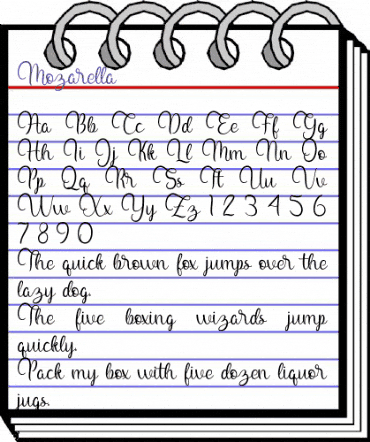 Mozarella
Aa Bb Cc Dd Ee Ff Gg
Hh Ii Jj Kk Ll Mm Nn Oo
Pp Qq Rr Ss Tt Uu Vv
Ww Xx Yy Zz 1 2 3 4 5 6
7 8 9 0
The quick brown fox jumps over the
lazy dog.
The five boxing wizards jump
quickly.
Pack my box with five dozen liquor
jugs.